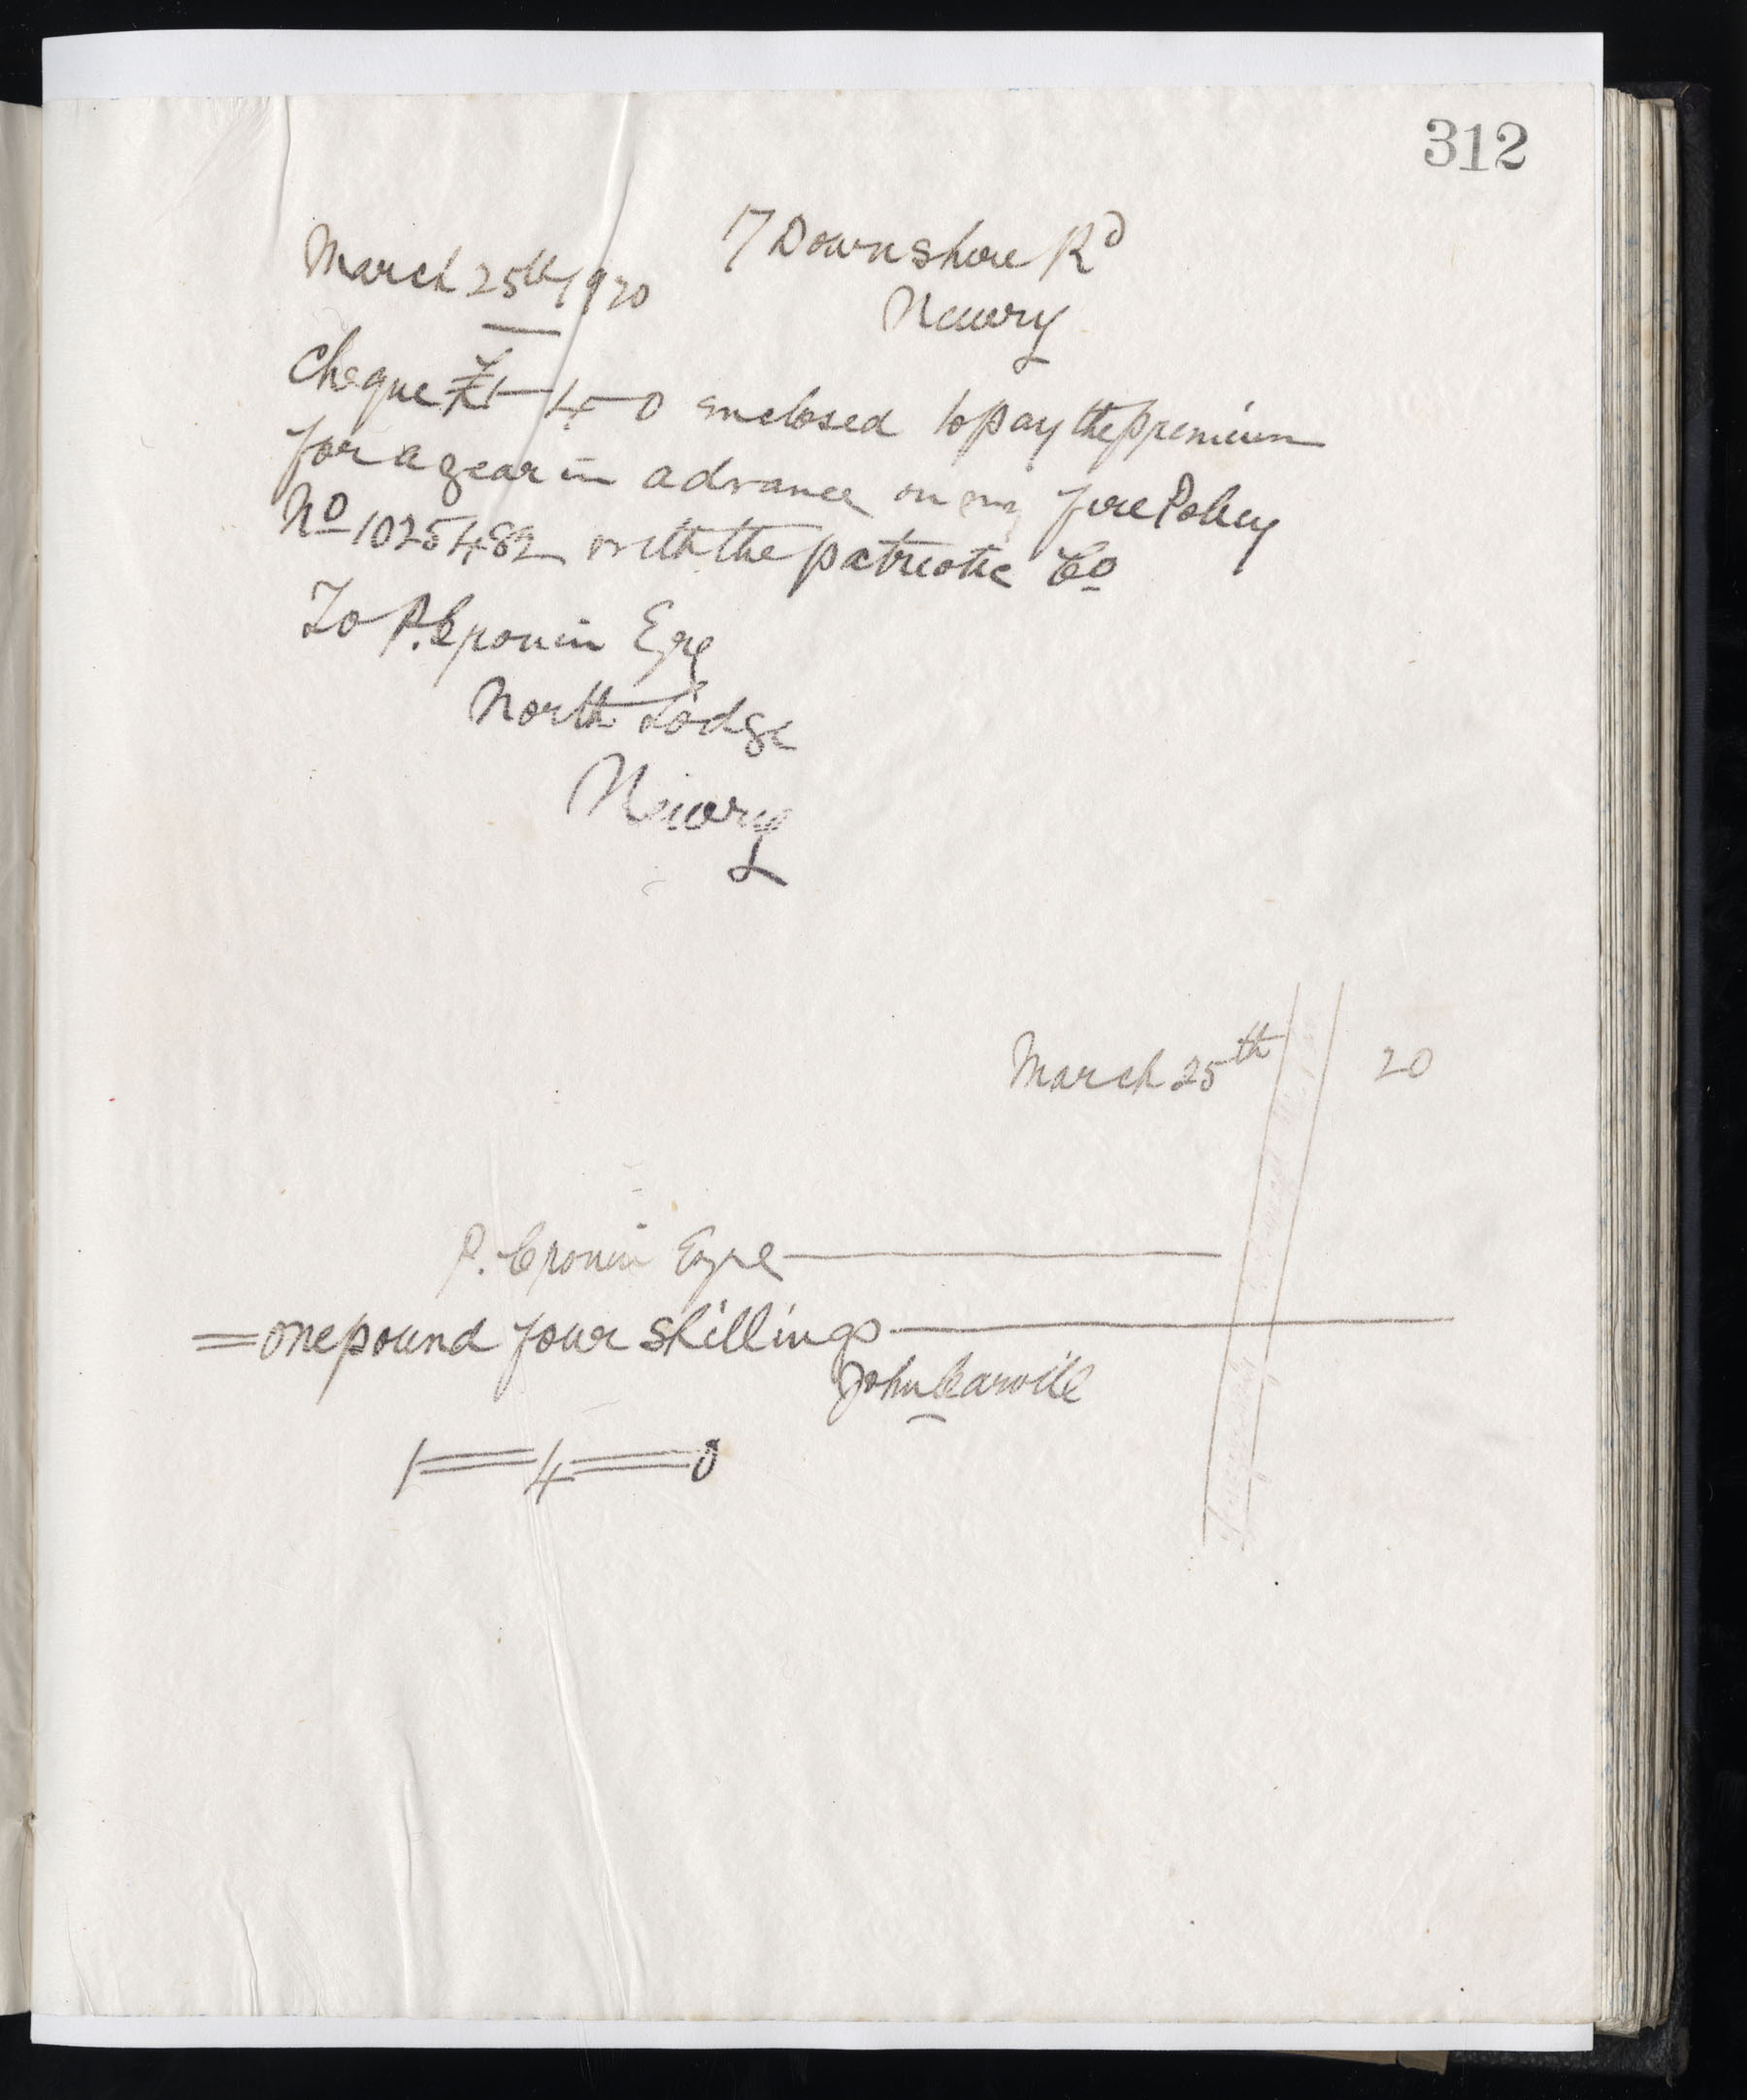 312
7 Downshire Rd
March 25th 1920
Newry
Cheque £1-4-0 enclosed to pay the premium
for a year in advance on my fire Policy
No 1025482 with the patriotic Co
To P. Cronin Eqre
North Lodge
Newry
March 25th 20
P. Cronin Eqre
= one pound four shillings
John Carvill
1=4=0